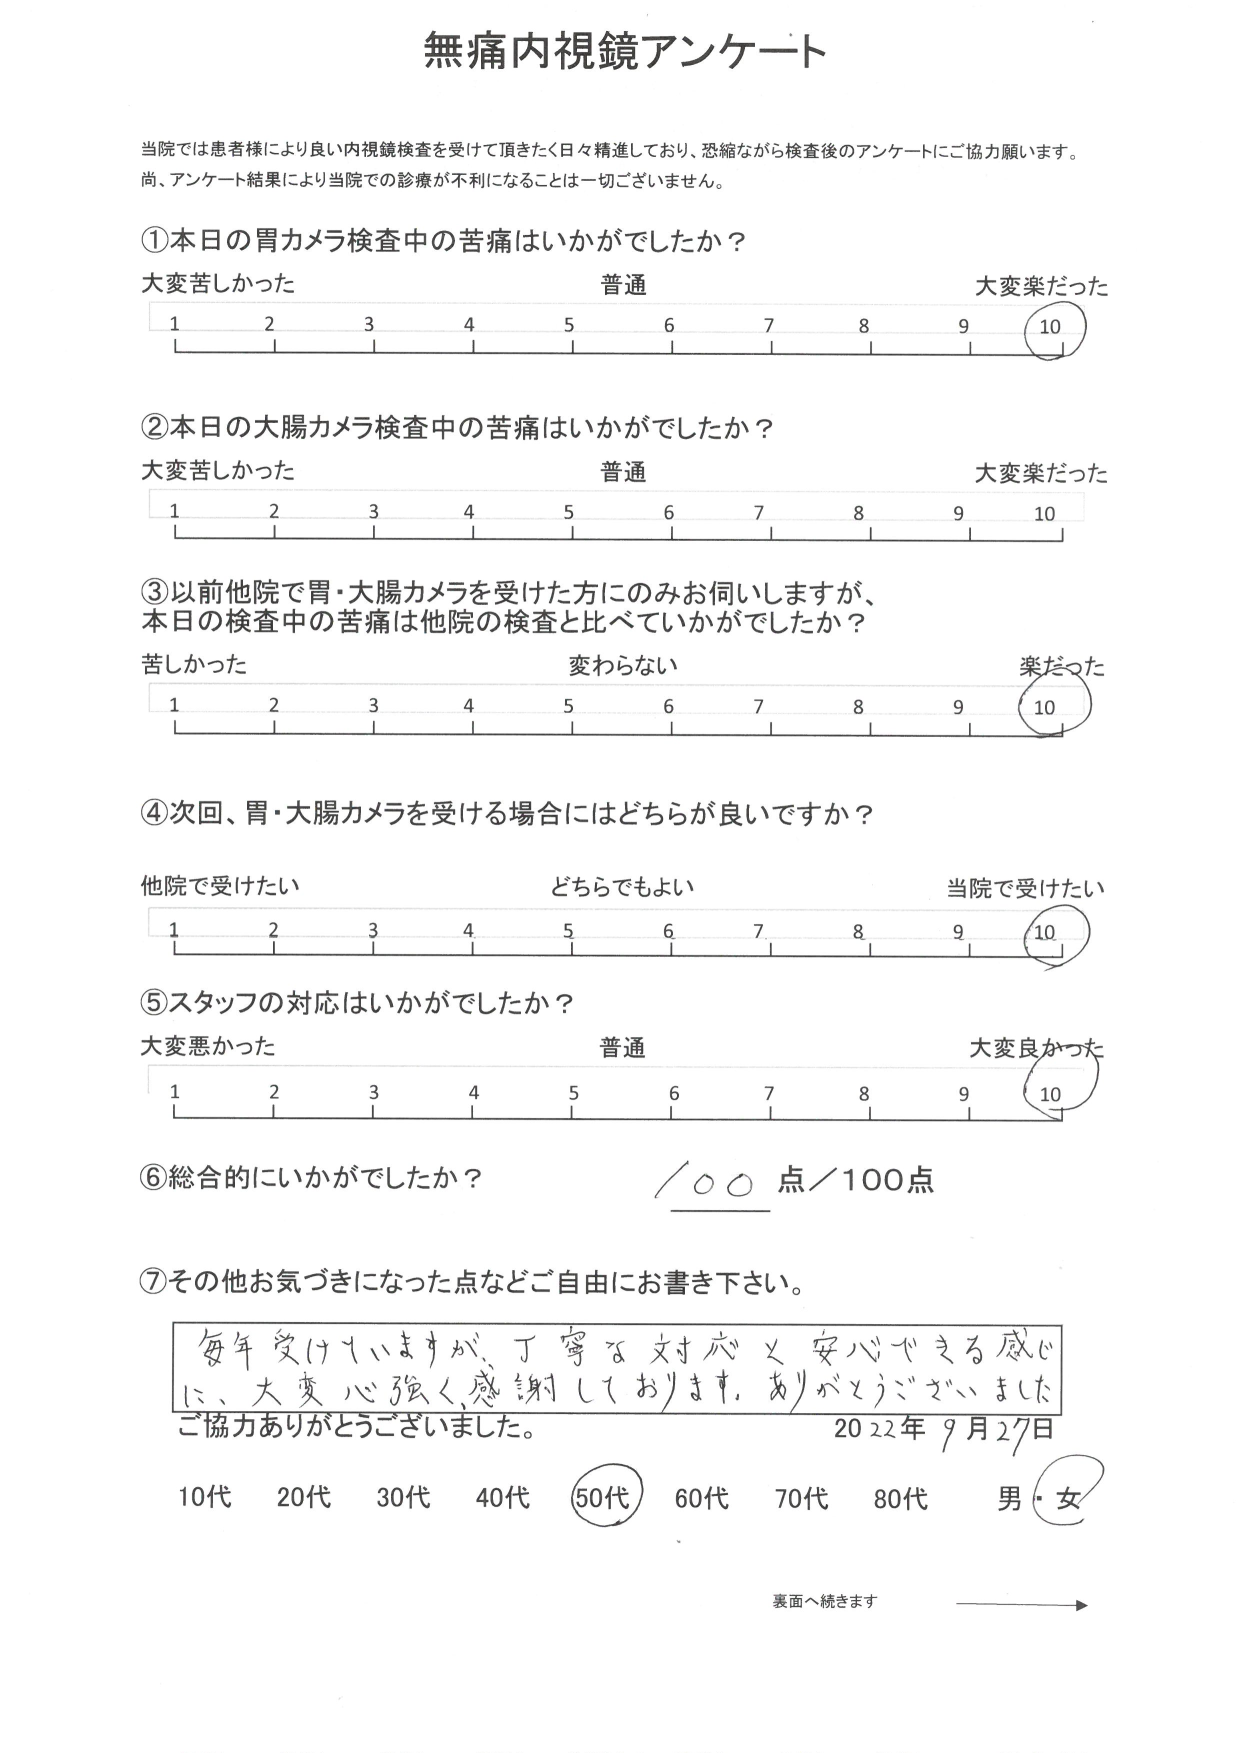 無痛内視鏡アンケート
当院では患者様により良い内視鏡検査を受けて頂きたく日々精進しており、恐縮ながら検査後のアンケートにご協力願います。
尚、アンケート結果により当院での診療が不利になることは一切ございません。
①本日の胃カメラ検査中の苦痛はいかがでしたか？
大変苦しかった 普通 大変楽だった
1 2 3 4 5 6 7 8 9 10
②本日の大腸カメラ検査中の苦痛はいかがでしたか？
大変苦しかった 普通 大変楽だった
1 2 3 4 5 6 7 8 9 10
③以前他院で胃・大腸カメラを受けた方にのみお伺いしますが、
本日の検査中の苦痛は他院の検査と比べていかがでしたか？
苦しかった 変わらない 楽だった
1 2 3 4 5 6 7 8 9 10
④次回、胃・大腸カメラを受ける場合にはどちらが良いですか？
他院で受けたい どちらでもよい 当院で受けたい
1 2 3 4 5 6 7 8 9 10
⑤スタッフの対応はいかがでしたか？
大変悪かった 普通 大変良かった
1 2 3 4 5 6 7 8 9 10
⑥総合的にいかがでしたか？ 100 点／100点
⑦その他お気づきになった点などご自由にお書き下さい。
毎年受けていますが、丁寧な対応と安心できる感じ
に、大変心強く、感謝しております。ありがとうございました
ご協力ありがとうございました。 2022年 9月27日
10代 20代 30代 40代 50代 60代 70代 80代 男・女
裏面へ続きます